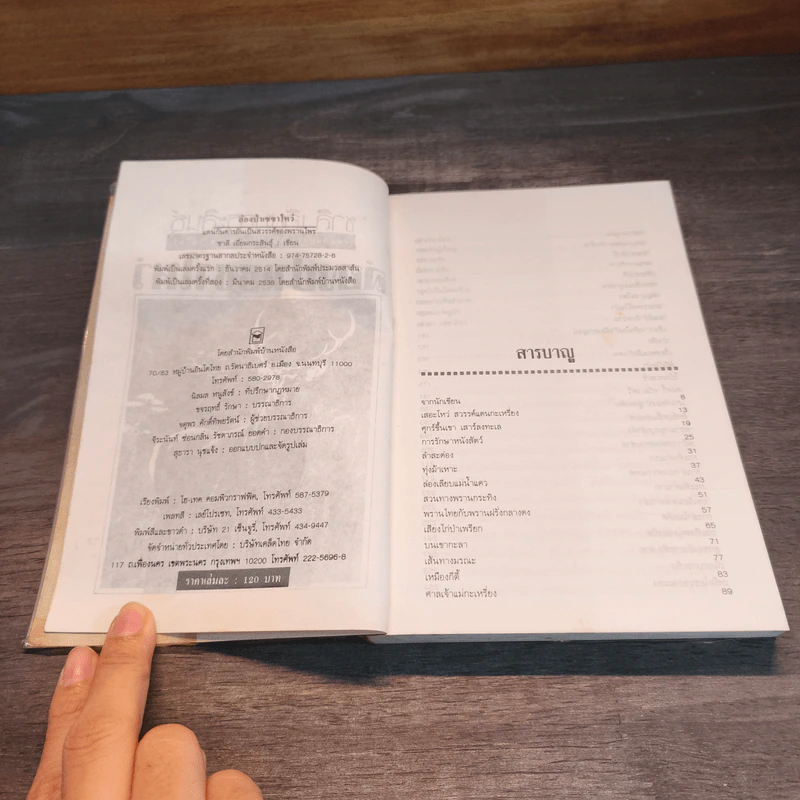 ล่องป่าเซซาโหว่
แดนกันดารอันเป็นสวรรค์ของพรานไพร
ชาลี เอี่ยมกระสินธุ์ : เขียน
เลขมาตรฐานสากลประจำหนังสือ : 974-75728-2-6
พิมพ์เป็นเล่มครั้งแรก : ธันวาคม 2514 โดยสำนักพิมพ์ประมวลสาส์น
พิมพ์เป็นเล่มครั้งที่สอง : มีนาคม 2535 โดยสำนักพิมพ์บ้านหนังสือ
โดยสำนักพิมพ์บ้านหนังสือ
70/63 หมู่บ้านอินโดไทย ถ.รัตนาธิเบศร์ อ.เมือง จ.นนทบุรี 11000
โทรศัพท์ : 580-2978
นิสมล หนูสังข์ : ที่ปรึกษากฎหมาย
ขจรฤทธิ์ รักษา : บรรณาธิการ
จตุพร ศักดิ์ทิพยรัตน์ : ผู้ช่วยบรรณาธิการ
จิระนันท์ ซ่อนกลิ่น รัชดาภรณ์ ยอดคำ : กองบรรณาธิการ
สุธารา นุชแจ้ง : ออกแบบปกและจัดรูปเล่ม
เรียงพิมพ์ : ไฮ-เทค คอมพิวกราฟฟิค, โทรศัพท์ 587-5379
เพลทสี : เลย์โปรเซท, โทรศัพท์ 433-5433
พิมพ์สีและขาวดำ : บริษัท 21 เซ็นจูรี่, โทรศัพท์ 434-9447
จัดจำหน่ายทั่วประเทศโดย : บริษัทเคล็ดไทย จำกัด
117 ถ.เฟื่องนคร เขตพระนคร กรุงเทพฯ 10200 โทรศัพท์ 222-5696-8
ราคาเล่มละ : 120 บาท
สารบาญ
จากนักเขียน 6
เสอะโหว่ สวรรค์แดนกะเหรี่ยง 13
ศุกร์ขึ้นเขา เสาร์ลงทะเล 19
การรักษาหนังสัตว์ 25
ลำสะด่อง 31
ทุ่งม้าเหาะ 37
ล่องเลียบแม่น้ำแคว 43
สวนทางพรานกระทิง 51
พรานไทยกับพรานฝรั่งกลางดง 57
เสียงไก่ป่าเพรียก 65
บนเขากะลา 71
เส้นทางมรณะ 77
เหมืองกีตี้ 83
ศาลเจ้าแม่กะเหรี่ยง 89